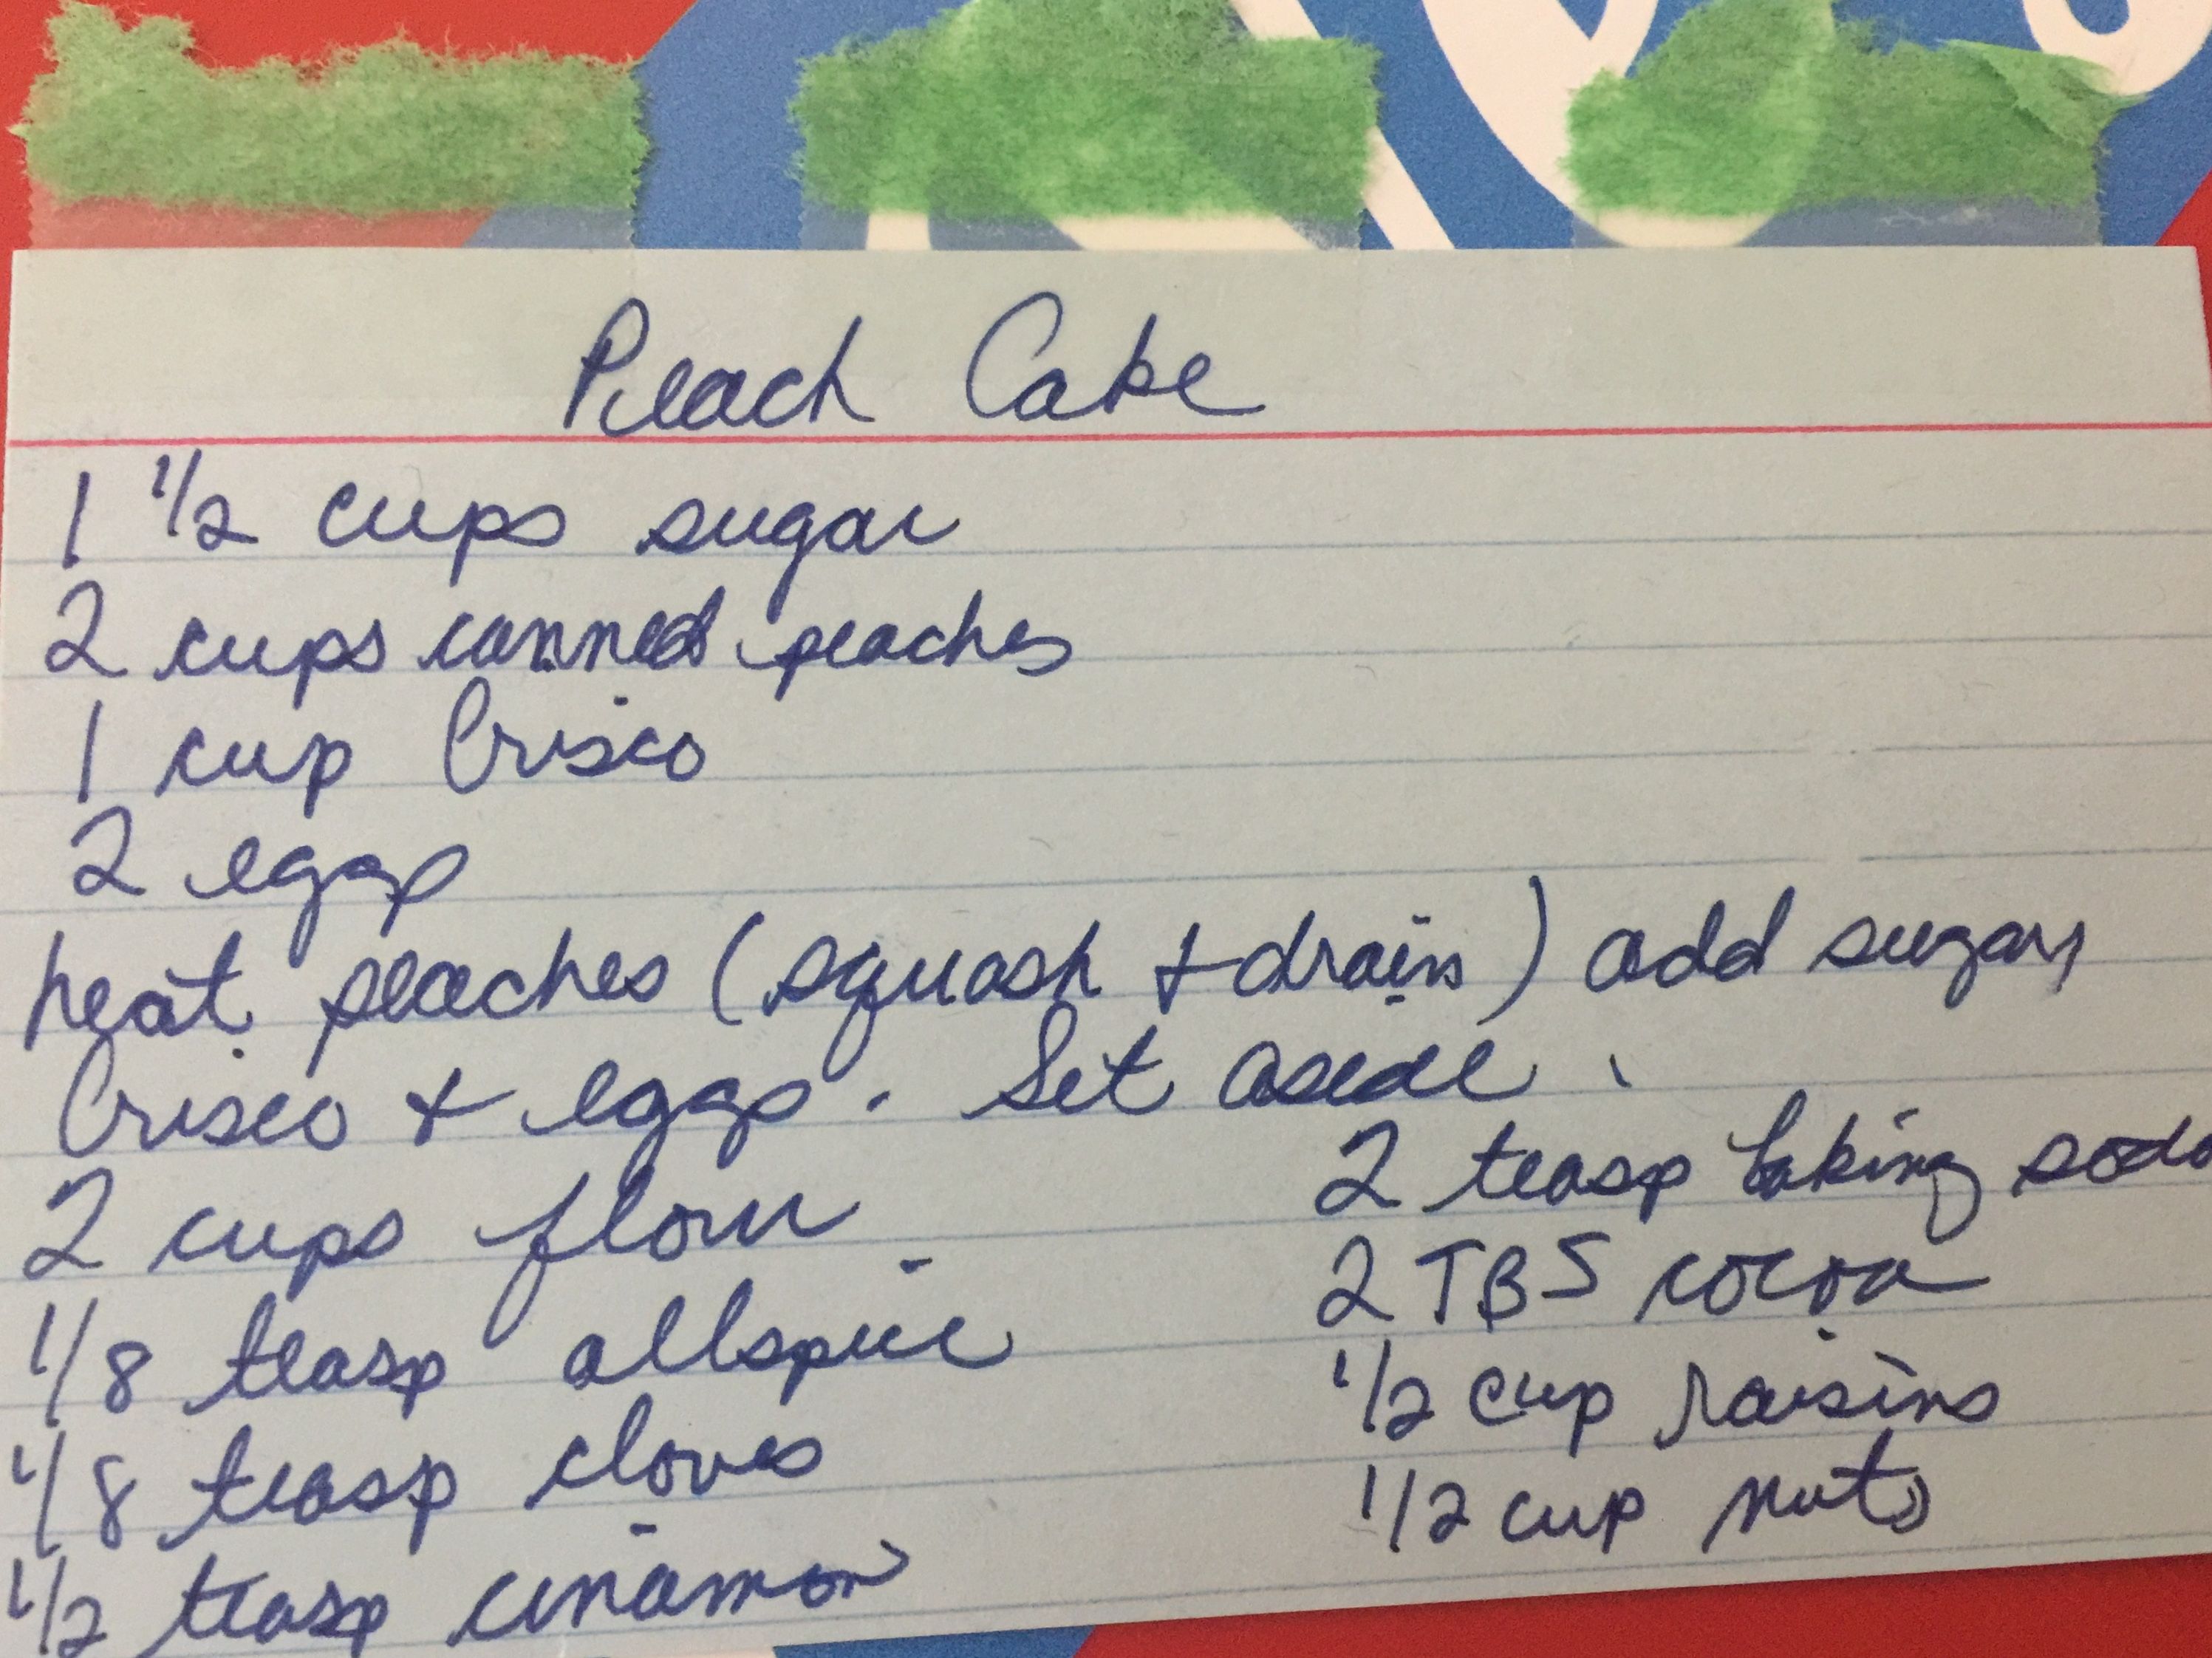 Peach Cake
1 1/2 cups sugar
2 cups canned peaches
1 cup Crisco
2 eggs
heat peaches (squash + drain) add sugar,
Crisco + eggs. Set aside.
2 cups flour
1/8 teasp allspice
1/8 teasp cloves
1/2 teasp cinamon
2 teasp baking soda
2 TBS cocoa
1/2 cup raisins
1/2 cup nuts